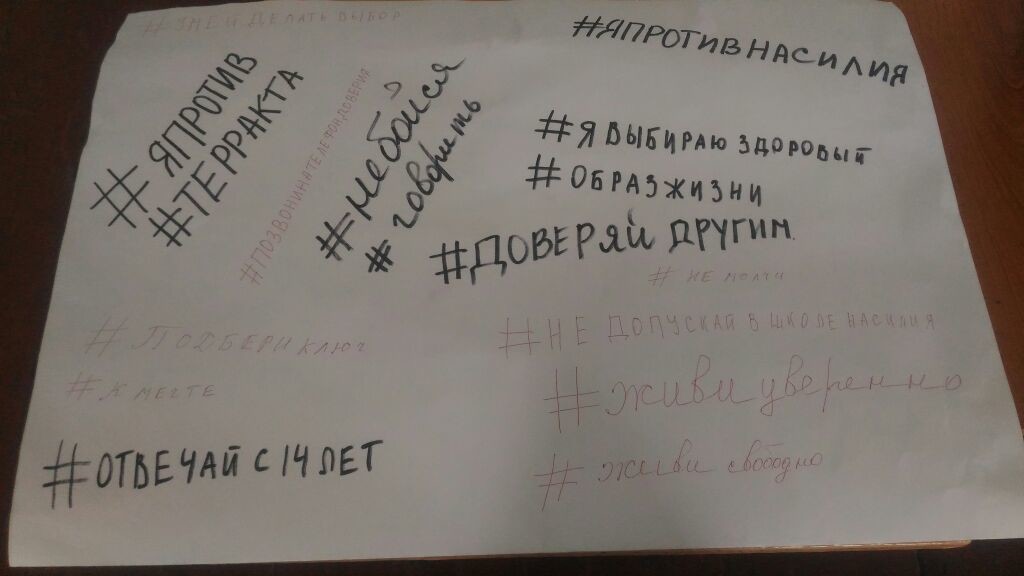 #УМЕЙ ДЕЛАТЬ ВЫБОР
#ЯПРОТИВНАСИЛИЯ
#ЯПРОТИВ
#ТЕРРАКТА
#ПОЗВОНИНАТЕЛЕФОНДОВЕРИЯ
#небойся
#говорить
#Я ВЫБИРАЮ ЗДОРОВЫЙ
#ОБРАЗЖИЗНИ
#ДОВЕРЯЙ ДРУГИМ.
#НЕ МОЛЧИ
#ПОДБЕРИ КЛЮЧ
#К МЕЧТЕ
#НЕ ДОПУСКАЙ В ШКОЛЕ НАСИЛИЯ
#живи уверенно
#ОТВЕЧАЙ С 14 ЛЕТ
#живи свободно